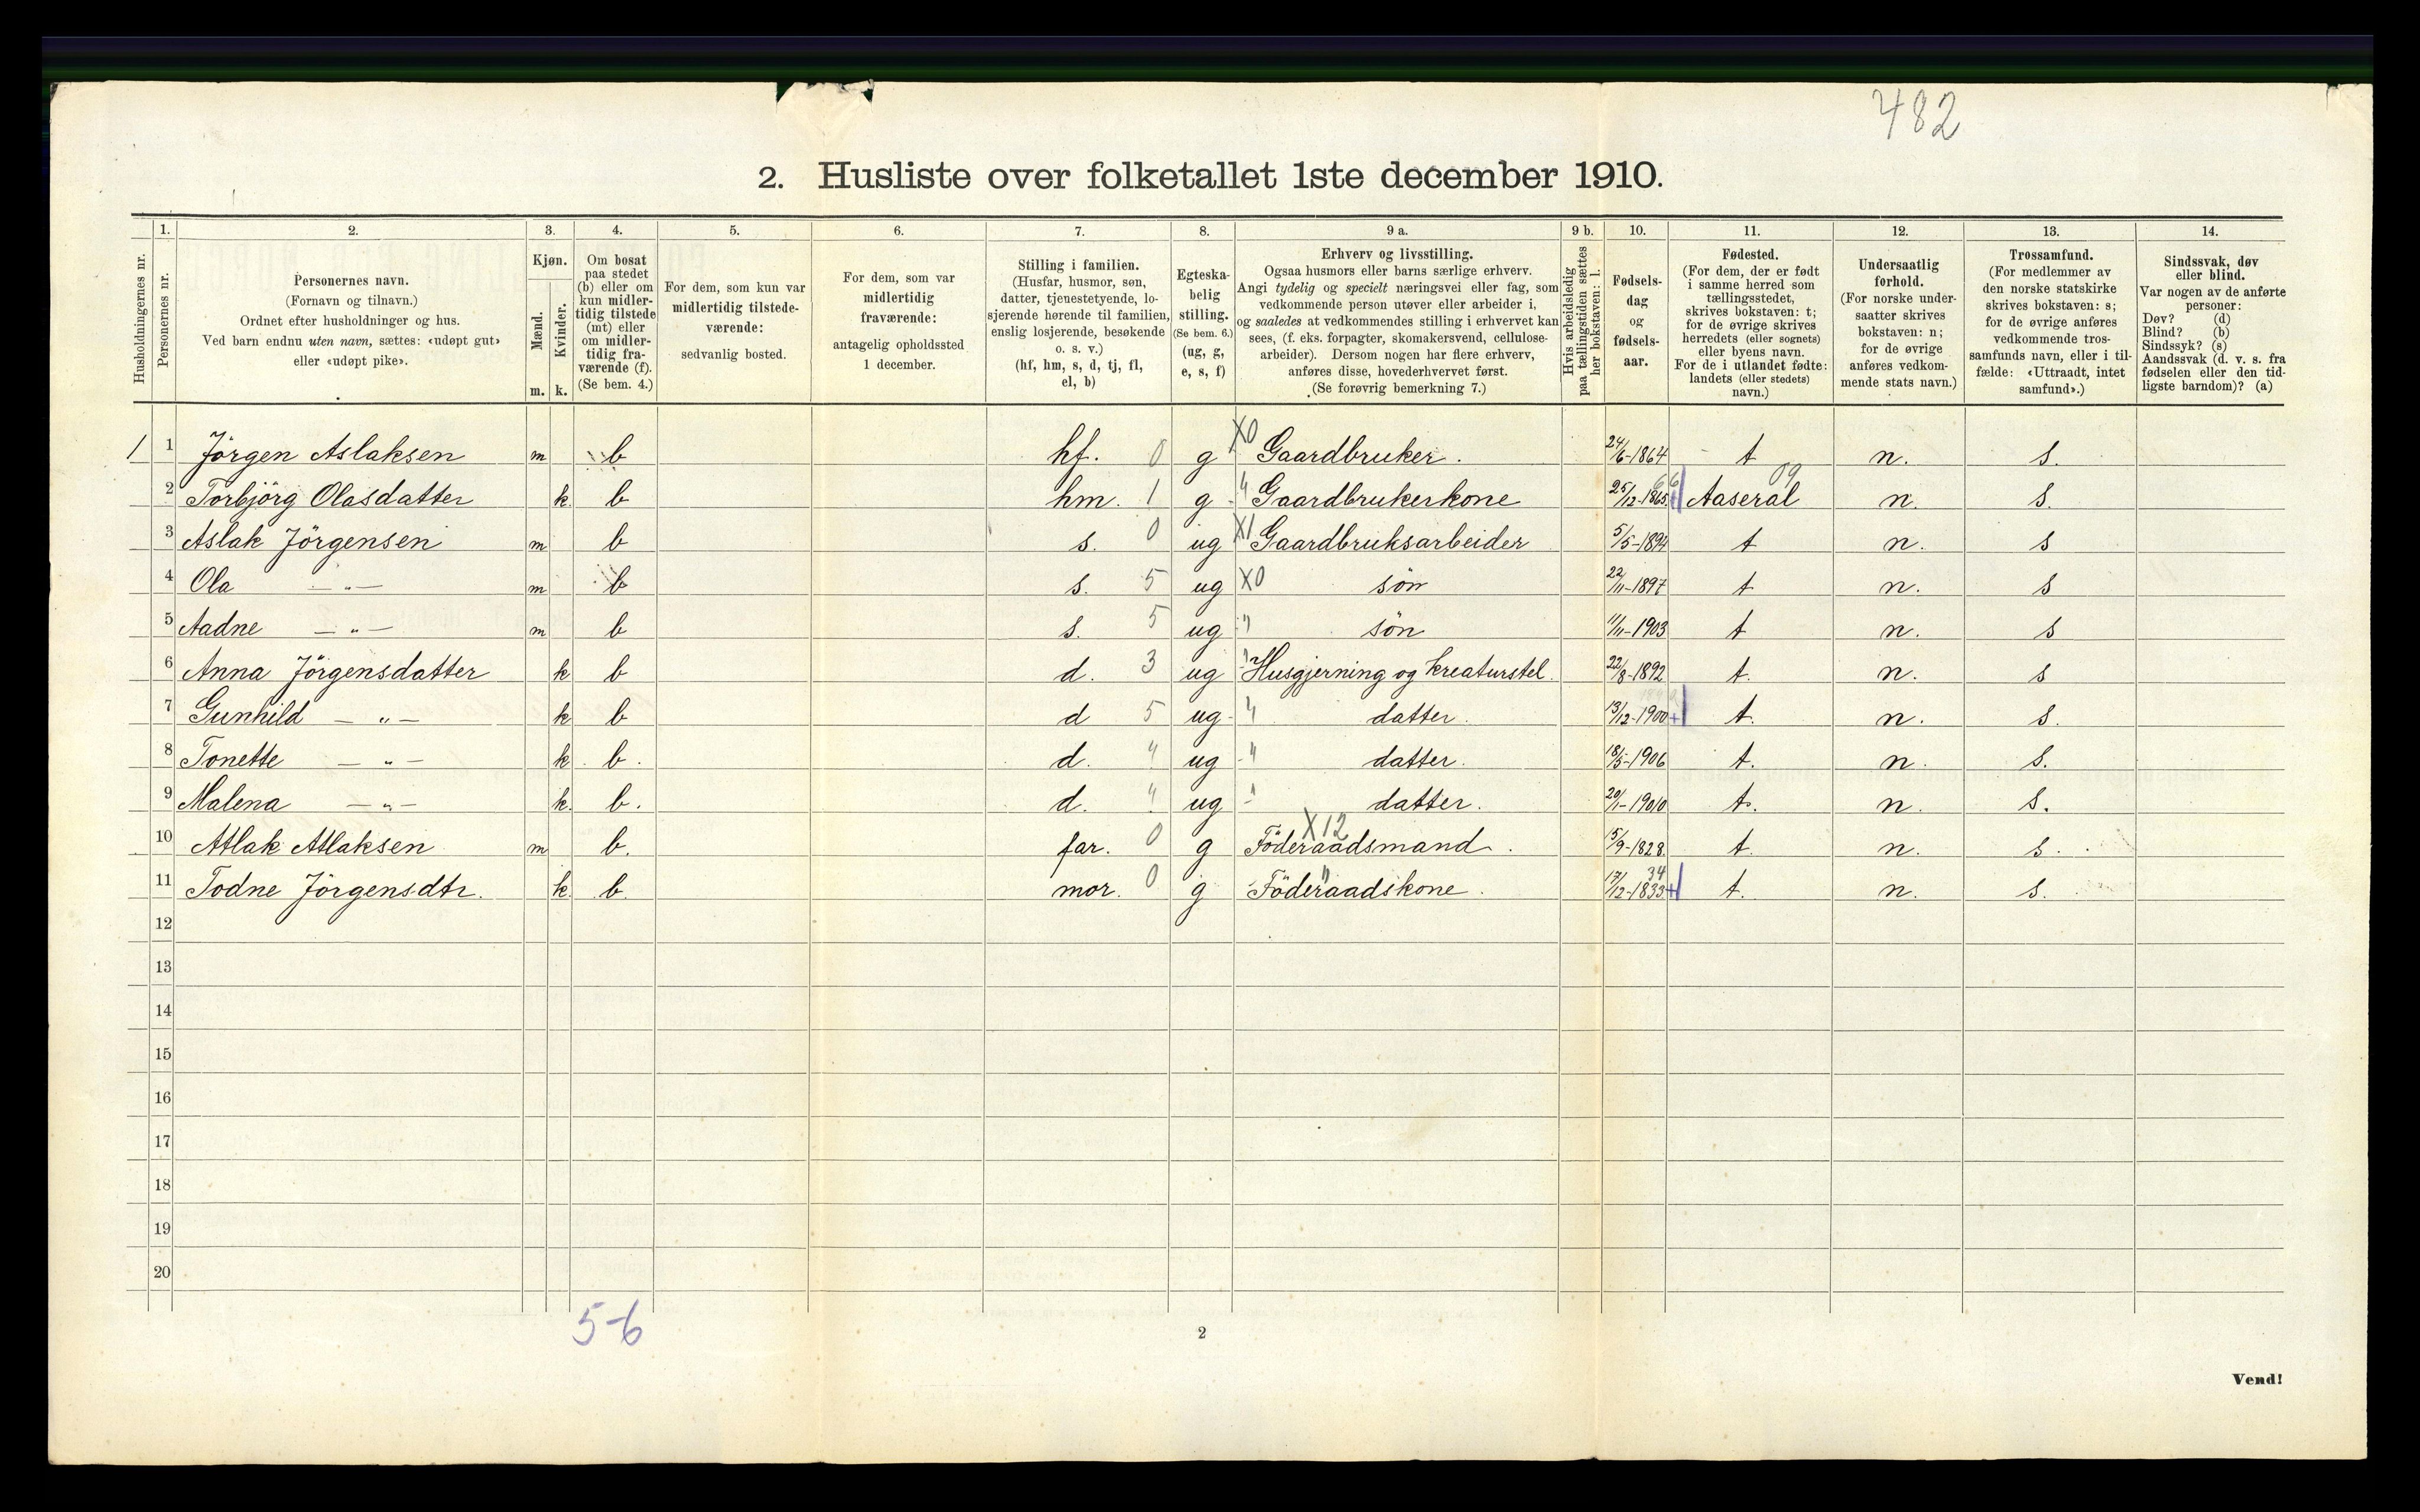 482
2. Husliste over folketallet 1ste december 1910.
1. 2. 3. 4. 5. 6. 7. 8. 9 a. 9 b. 10. 11. 12. 13. 14.
Husholdningernes nr.
Personernes nr.
Personernes navn.
(Fornavn og tilnavn.)
Ordnet efter husholdninger og hus.
Ved barn endnu uten navn, sættes: «udøpt gut»
eller «udøpt pike».
Kjøn.
Mænd.
Kvinder.
m. k.
Om bosat
paa stedet
(b) eller om
kun midler-
tidig tilstede
(mt) eller
om midler-
tidig fra-
værende (f).
(Se bem. 4.)
For dem, som kun var
midlertidig tilstede-
værende:
sedvanlig bosted.
For dem, som var
midlertidig
fraværende:
antagelig opholdssted
1 december.
Stilling i familien.
(Husfar, husmor, søn,
datter, tjenestetyende, lo-
sjerende hørende til familien,
enslig losjerende, besøkende
o. s. v.)
(hf, hm, s, d, tj, fl,
el, b)
Egteska-
belig
stilling.
(Se bem. 6.)
(ug, g,
e, s, f)
Erhverv og livsstilling.
Ogsaa husmors eller barns særlige erhverv.
Angi tydelig og specielt næringsvei eller fag, som
vedkommende person utøver eller arbeider i,
og saaledes at vedkommendes stilling i erhvervet kan
sees, (f. eks. forpagter, skomakersvend, cellulose-
arbeider). Dersom nogen har flere erhverv,
anføres disse, hovederhvervet først.
(Se forøvrig bemerkning 7.)
Hvis arbeidsledig
paa tællingstiden sættes
her bokstaven: l.
Fødsels-
dag
og
fødsels-
aar.
Fødested.
(For dem, der er født
i samme herred som
tællingsstedet,
skrives bokstaven: t;
for de øvrige skrives
herredets (eller sognets)
eller byens navn.
For de i utlandet fødte:
landets (eller stedets)
navn.)
Undersaatlig
forhold.
(For norske under-
saatter skrives
bokstaven: n;
for de øvrige
anføres vedkom-
mende stats navn.)
Trossamfund.
(For medlemmer av
den norske statskirke
skrives bokstaven: s;
for de øvrige anføres
vedkommende tros-
samfunds navn, eller i til-
fælde: «Uttraadt, intet
samfund».)
Sindssvak, døv
eller blind.
Var nogen av de anførte
personer:
Døv? (d)
Blind? (b)
Sindssyk? (s)
Aandssvak (d. v. s. fra
fødselen eller den tid-
ligste barndom)? (a)
1 1 Jörgen Aslaksen m b hf. 0 g X0 Gaardbruker. 24/6-1864 t n. s.
2 Torbjörg Olasdatter k b hm. 1 g " Gaardbrukerkone 25/12-1865 66 Aaseral 09 n. s.
3 Aslak Jörgensen m b s. 0 ug X1 Gaardbruksarbeider 5/5-1894 t n. s
4 Ola — " — m b s. 5 ug X0 sön 22/11-1897 t n. s
5 Aadne — " — m b s. 5 ug " sön 11/11-1903 t n. s
6 Anna Jörgensdatter k b d. 3 ug " Husgjerning og kreaturstel. 22/8-1892 t. n. s
7 Gunhild — " — k b d 5 ug " datter. 13/12-1900 + t. n. s.
8 Tonette — " — k b. d. " ug " datter. 18/5-1906 t. n. s.
9 Malena — " — k. b. d. " ug " datter. 20/1-1910 t. n. s.
10 Atlak Atlaksen m b. far. 0 g X12 Föderaadsmand. 15/9-1828. t. n. s.
11 Todne Jörgensdtr. k. b. mor. 0 g " Föderaadskone. 17/12-1833 34 + t. n. s.
12
13
14
15
16
17
18
19
20
5-6
2
Vend!